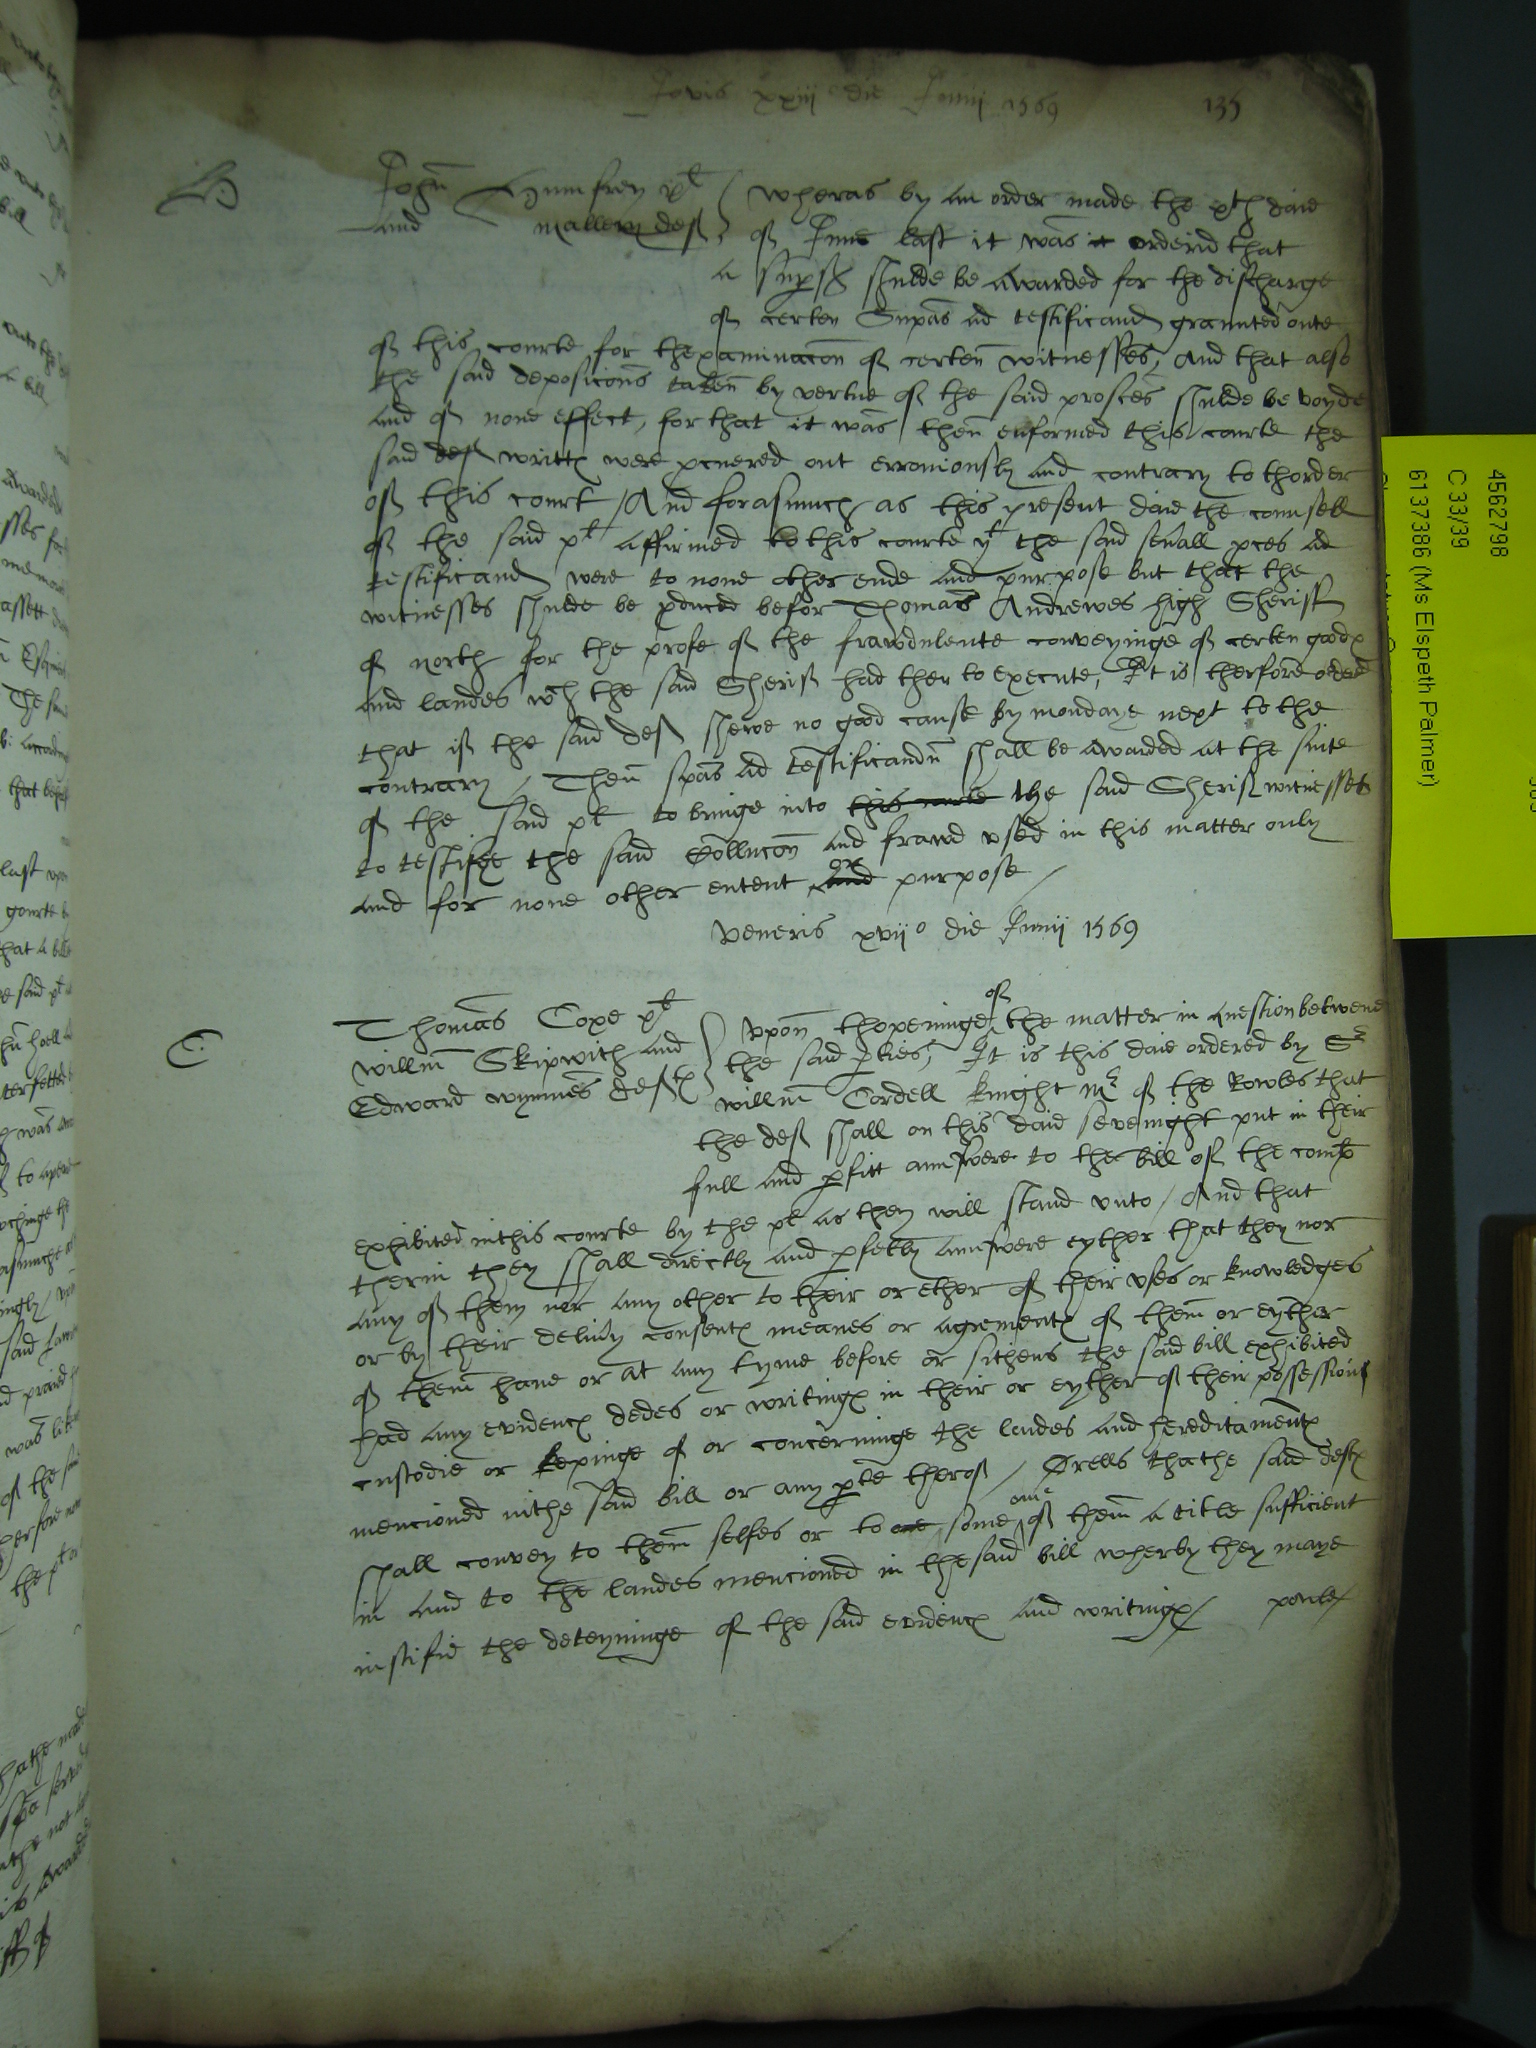 Jovis xxiii die Junii 1569 135
H
John Humfrey plt
and mallery def
wheras by an order made the xth daie
of June last it was it orderid that
a sup's shulde be awarded for the discharge
of certen Supas ad testificand graunted oute
of this courte for thexaminacon of certen witnesses, And that also
the said deposicons taken by vertue of the said prosces shulde be voyde
and of none effect, for that it was then enformed this courte the
said def writtes were pcuered out erroniously and contrary to thorder
of this court / And forasmuch as this present daie the counsell
of the said plt affirmed to this courte yt the said seuall pces ad
testificand were to none other ende and purpose but that the
witnesses shulde be pduced befor Thomas Andrewes high Sherif
of north for the profe of the frawdulente conveyinge of certen goodes
and landes wch the said Sherif had ther to execute, It is therfore ordered
that if the said def shewe no good cause by mondaye next to the
contrary / Then spas ad testificandu shall be awarded at the suite
of the said plt to bringe into this courte the said Sherif witnesses
to testifye the said Collucon and frawd vsed in this matter only
and for none other entent and or purpose /
Veneris xvii° die Junii 1569
C
Thomas Coxe plt
willm Skipwith and
Edward wymnes deftes
Vpon thopeninge of the matter in question betwene
the said pties, It is this daie ordered by Sr
willm Cordell knight mr of the Rowles that
the def shall on this daie sevenight put in their
full and pfitt aunswere to the bill of the complt
exhibited in this courte by the plt as they will stand vnto / And that
therin they shall directly and pfectly aunswere eyther that they nor
any of them nor any other to their or ether of their vses or knowledges
or by their deliuy consentes meanes or agrementes of them or eyther
of them haue or at any tyme before or sithens the said bill exhibited
had any evidences dedes or writinges in their or eyther of their possessions
custodie or kepinge of or concerninge the landes and hereditamentes
mencioned in the said bill or any pte therof / Orells that the said deftes
shall convey to them selfes or to one some one of them a title sufficient
in and to the landes mencioned in the said bill wherby they maye
iustifie the deteyninge of the said evidences and writinges / powle
4562798
C 33/39
6137386 (Ms Elspeth Palmer)